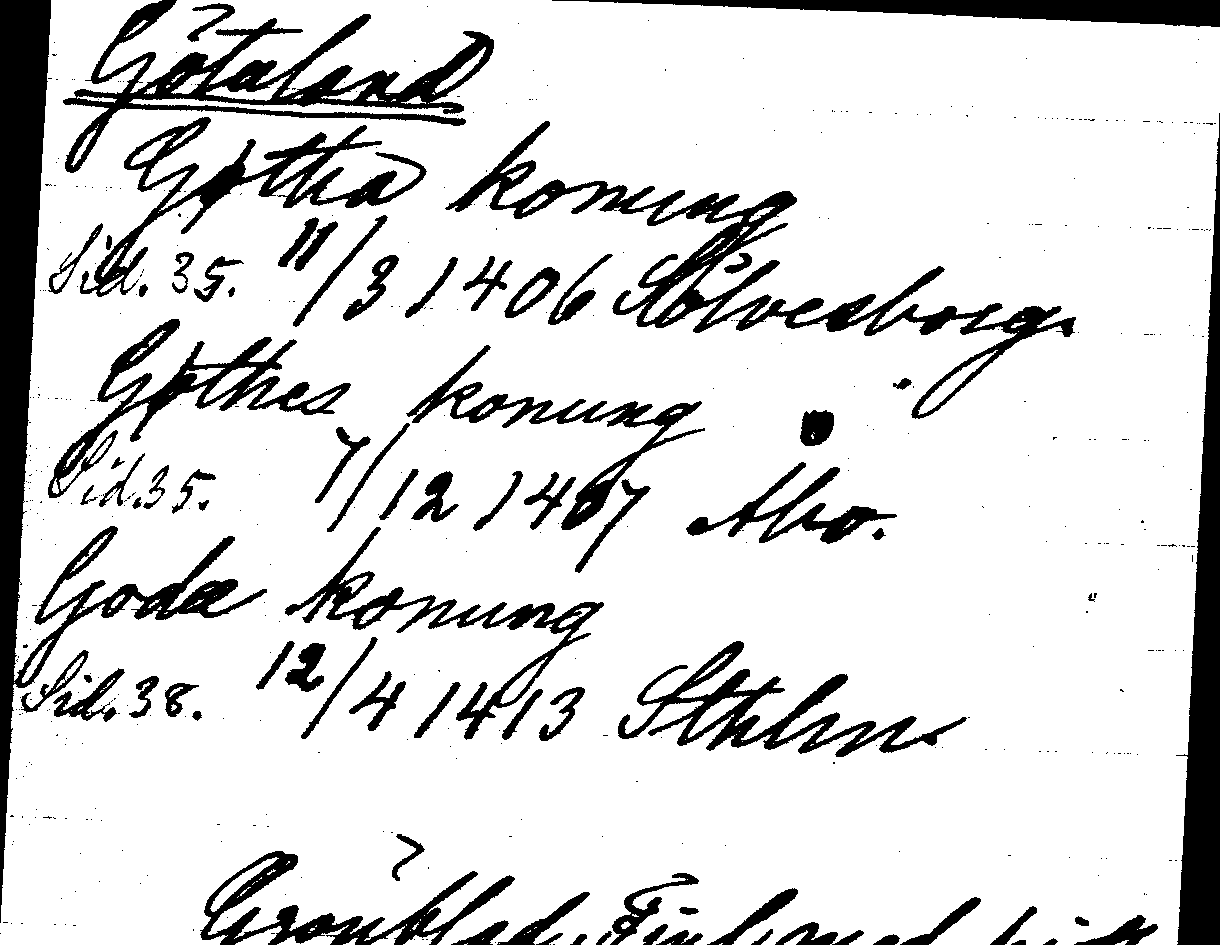 Götaland
Gøtha konung
Sid. 35. 11/3 1406 Sölvesborg.
Gøthes konung
Sid. 35. 7/12 1407 Åbo.
Goda konung
Sid. 38. 12/4 1413 Sthlm.
Grönblad, Finl. med.